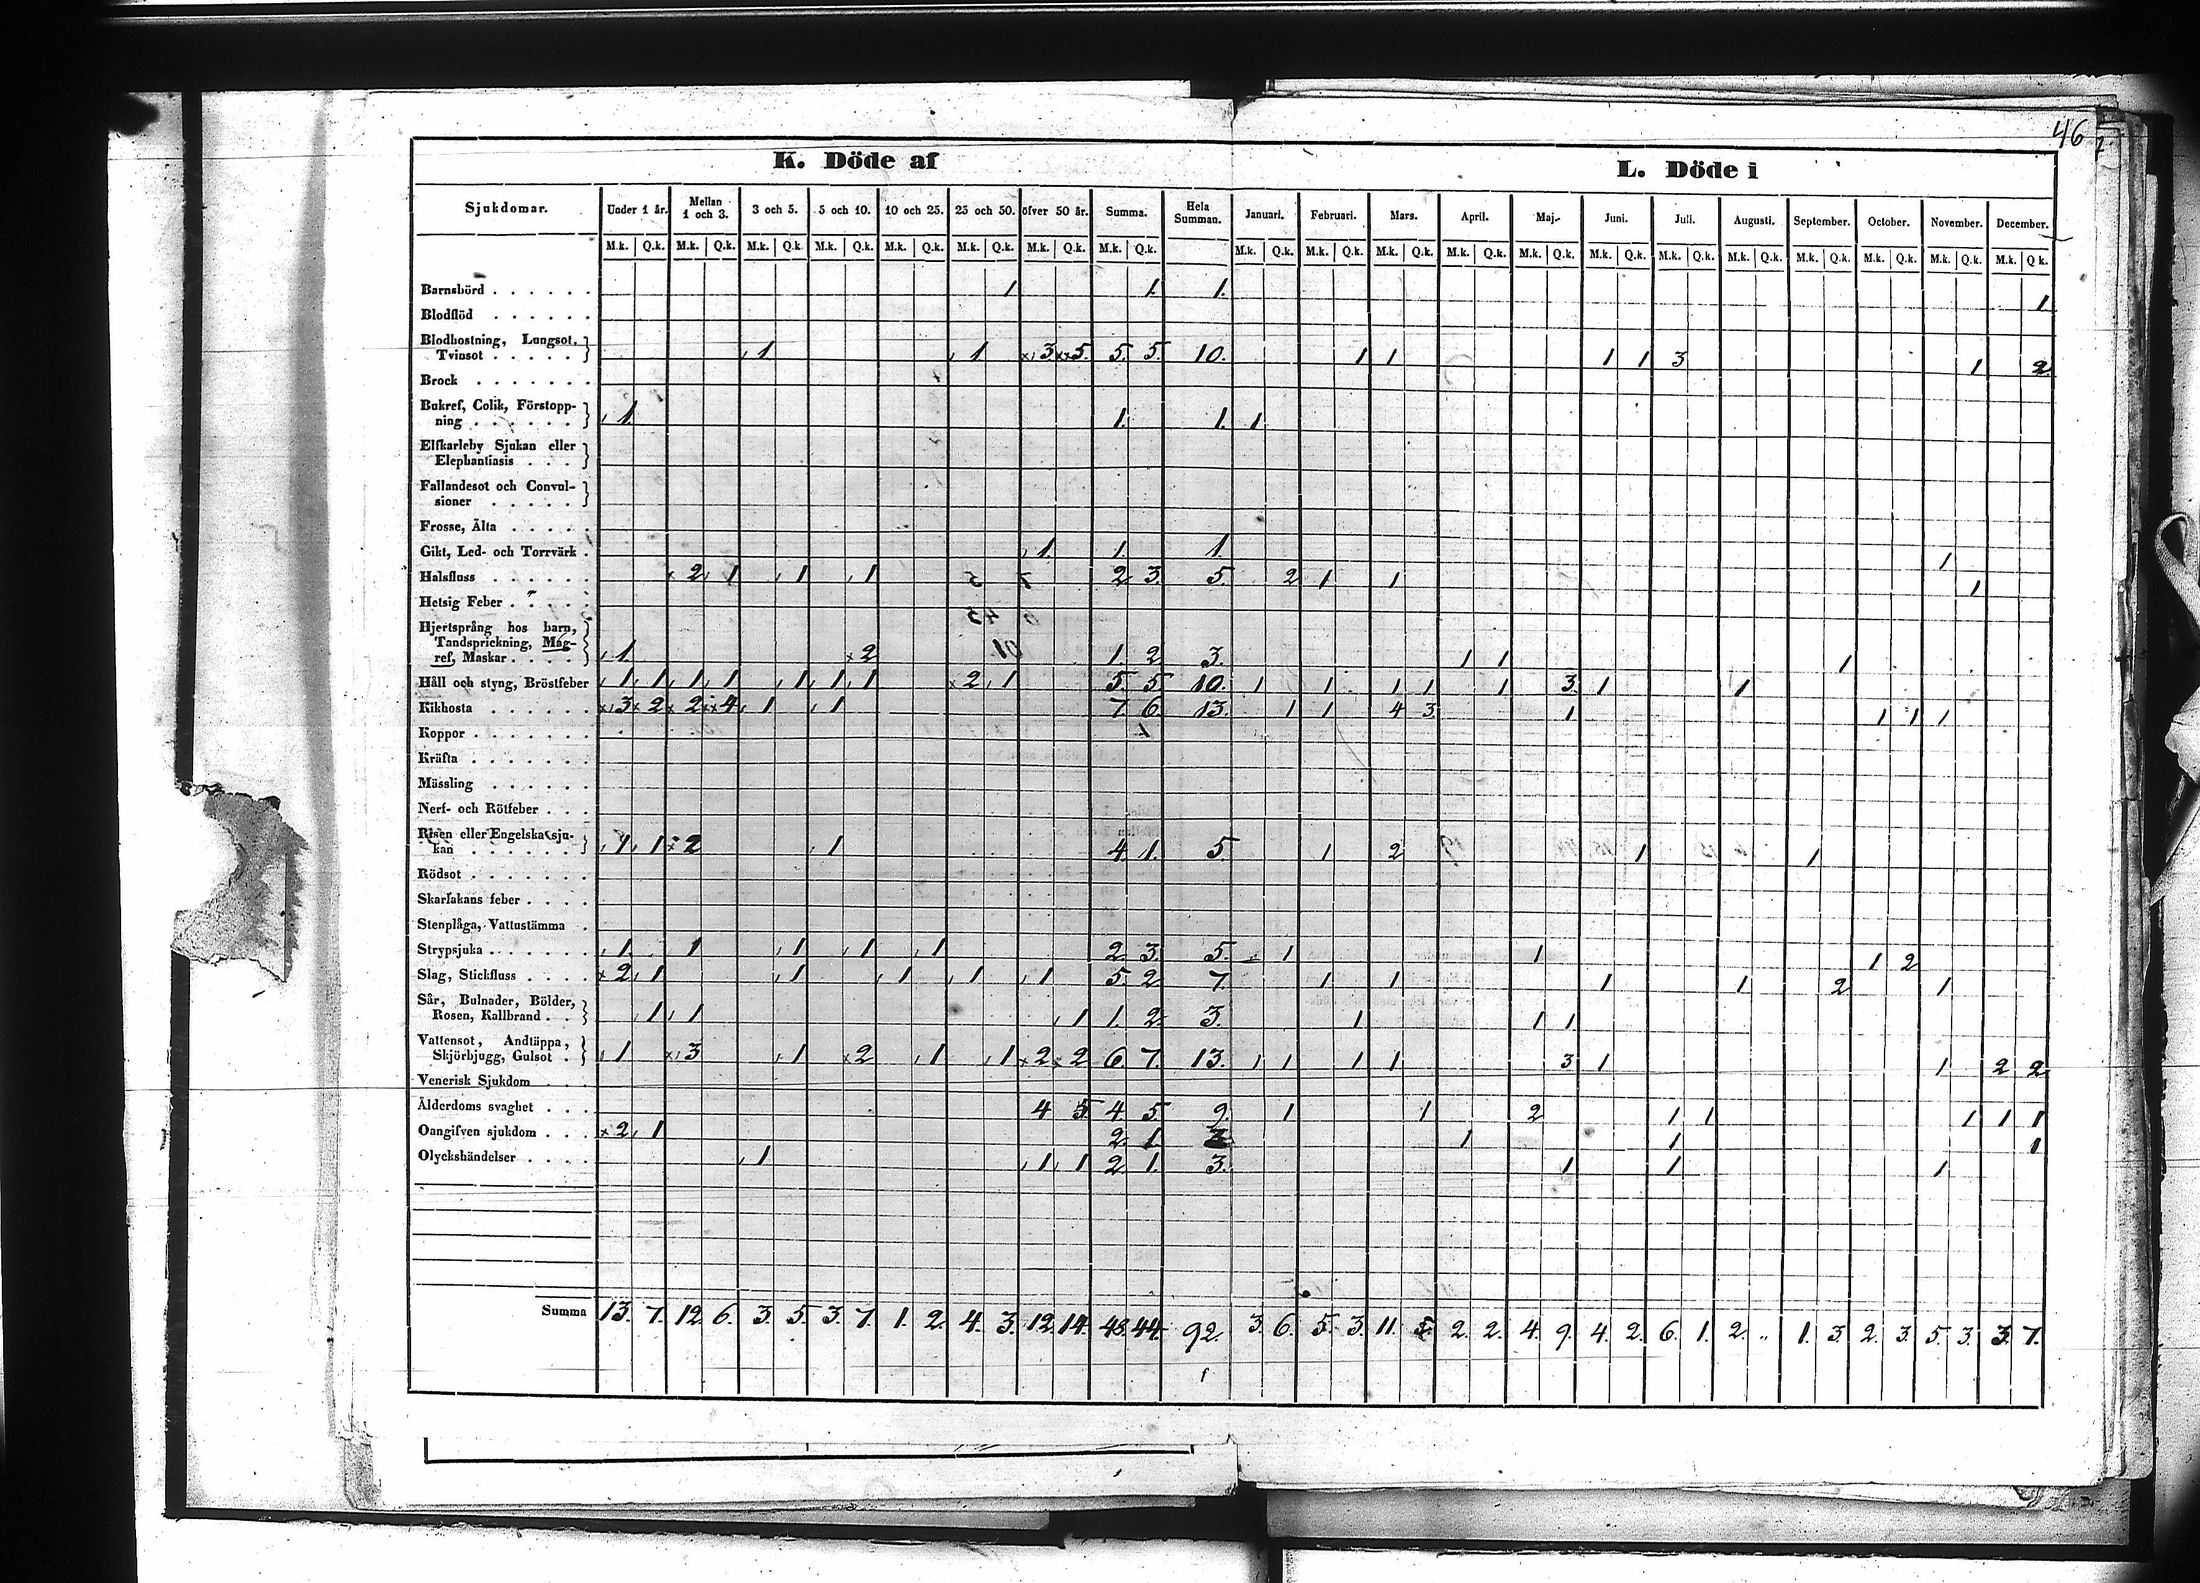 46
K. Döde af
L. Döde i
Sjukdomar. Under 1 år. Mellan 1 och 3. 3 och 5. 5 och 10. 10 och 25. 25 och 50. öfver 50 år. Summa. Hela Summan. Januari. Februari. Mars. April. Maj. Juni. Juli. Augusti. September. October. November. December.
M.k. Q.k. M.k. Q.k. M.k. Q.k. M.k. Q.k. M.k. Q.k. M.k. Q.k. M.k. Q.k. M.k. Q.k. M.k. Q.k. M.k. Q.k. M.k. Q.k. M.k. Q.k. M.k. Q.k. M.k. Q.k. M.k. Q.k. M.k. Q.k. M.k. Q.k. M.k. Q.k. M.k. Q.k. M.k. Q.k.
Barnsbörd . . . . . . 1 1. 1. 1.
Blodflöd . . . . . .
Blodhostning, Lungsot,
Tvinsot . . . . . 1 1 3 5. 5. 5. 10. 1 1 1 1 3 1 2.
Brock . . . . . . .
Bukref, Colik, Förstopp-
ning . . . . . . 1. 1. 1. 1.
Elfkarleby Sjukan eller
Elephantiasis . . .
Fallandesot och Convul-
sioner . . . . .
Frosse, Älta . . . . .
Gikt, Led- och Torrvärk . 1. 1. 1. 1
Halsfluss . . . . . . 2 1 1 1 2. 3. 5. 2 1 1 1
Hetsig Feber . . . .
Hjertsprång hos barn,
Tandsprickning, Mag-
ref, Maskar . . . . 1. 2 1. 2. 3. 1 1 1
Håll och styng, Bröstfeber 1 1 1 1 1 1 1 2 1 5. 5. 10. 1 1 1 1 1 3. 1 1
Kikhosta . . . . . . 3 2 2 4 1 1 7. 6. 13. 1 1 4 3 1 1 1 1
Koppor . . . . . . .
Kräfta . . . . . . .
Mässling . . . . . .
Nerf- och Rötfeber . . .
Risen eller Engelska sju-
kan . . . . . . 1 1 2 1 4. 1. 5. 1 2 1 1
Rödsot . . . . . . .
Skarlakans feber . . . .
Stenplåga, Vattustämma .
Strypsjuka . . . . . . 1 1 1 1 1 2. 3. 5. 1 1 1 2
Slag, Stickfluss . . . . 2 1 1 1 1 1 5. 2. 7. 1 1 1 1 2 1
Sår, Bulnader, Bölder,
Rosen, Kallbrand . . 1 1 1 1. 2. 3. 1 1 1
Vattensot, Andtäppa,
Skjörbjugg, Gulsot . 1 3 1 2 1 1 2 2 6. 7. 13. 1 1 1 1 3 1 1 2 2.
Venerisk Sjukdom . . .
Ålderdoms svaghet . . . 4 5 4. 5. 9. 1 1 2 1 1 1 1 1
Oangifven sjukdom . . . 2 1 2. 1. 3. 1 1 1
Olyckshändelser . . . . 1 1 1 2. 1. 3. 1 1 1
Summa 13. 7. 12. 6. 3. 5. 3. 7. 1. 2. 4. 3. 12. 14. 48. 44. 92. 3. 6. 5. 3. 11. 5. 2. 2. 4. 9. 4. 2. 6. 1. 2. .. 1. 3. 2. 3. 5. 3. 3. 7.